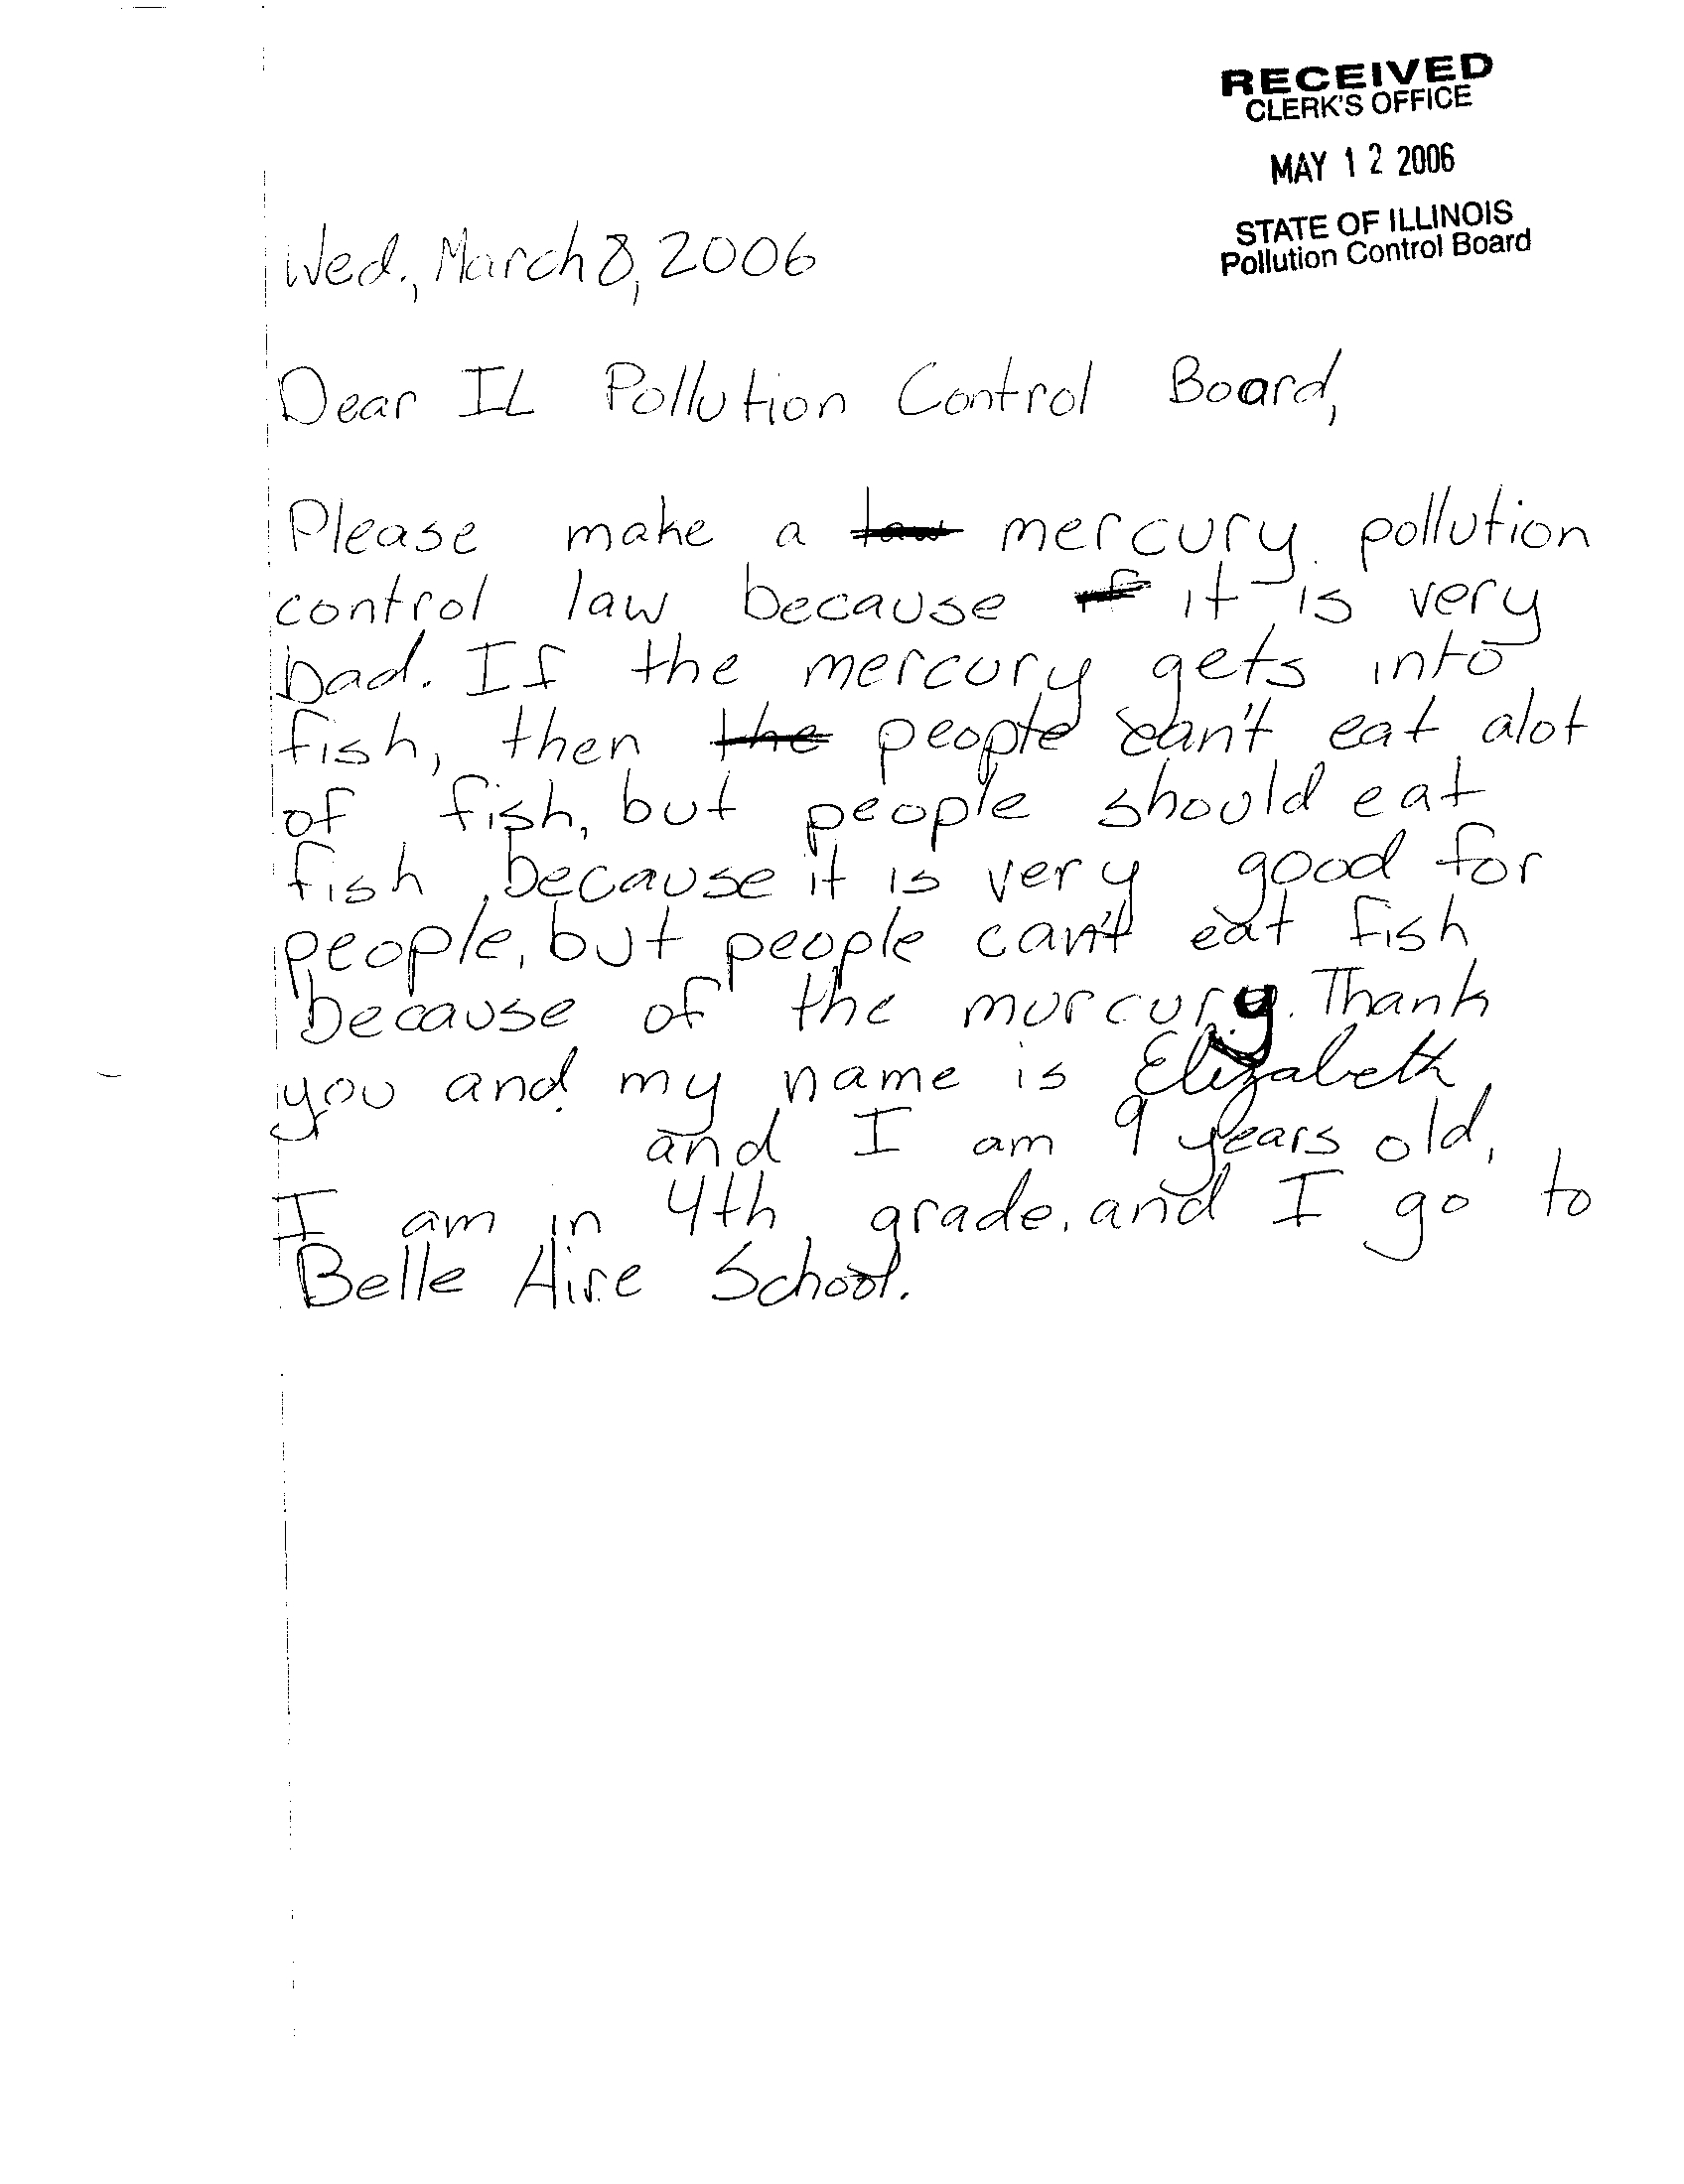 RECEIVED
CLERK'S OFFICE
MAY 12 2006
STATE OF ILLINOIS
Pollution Control Board
Wed., March 8, 2006
Dear IL Pollution Control Board,
Please make a law mercury pollution
control law because if it is very
bad. If the mercury gets into
fish, then the people can't eat alot
of fish, but people should eat
fish, because it is very good for
people, but people can't eat fish
because of the murcury. Thank
you and my name is Elizabeth
and I am 9 years old,
I am in 4th grade, and I go to
Belle Aire School.